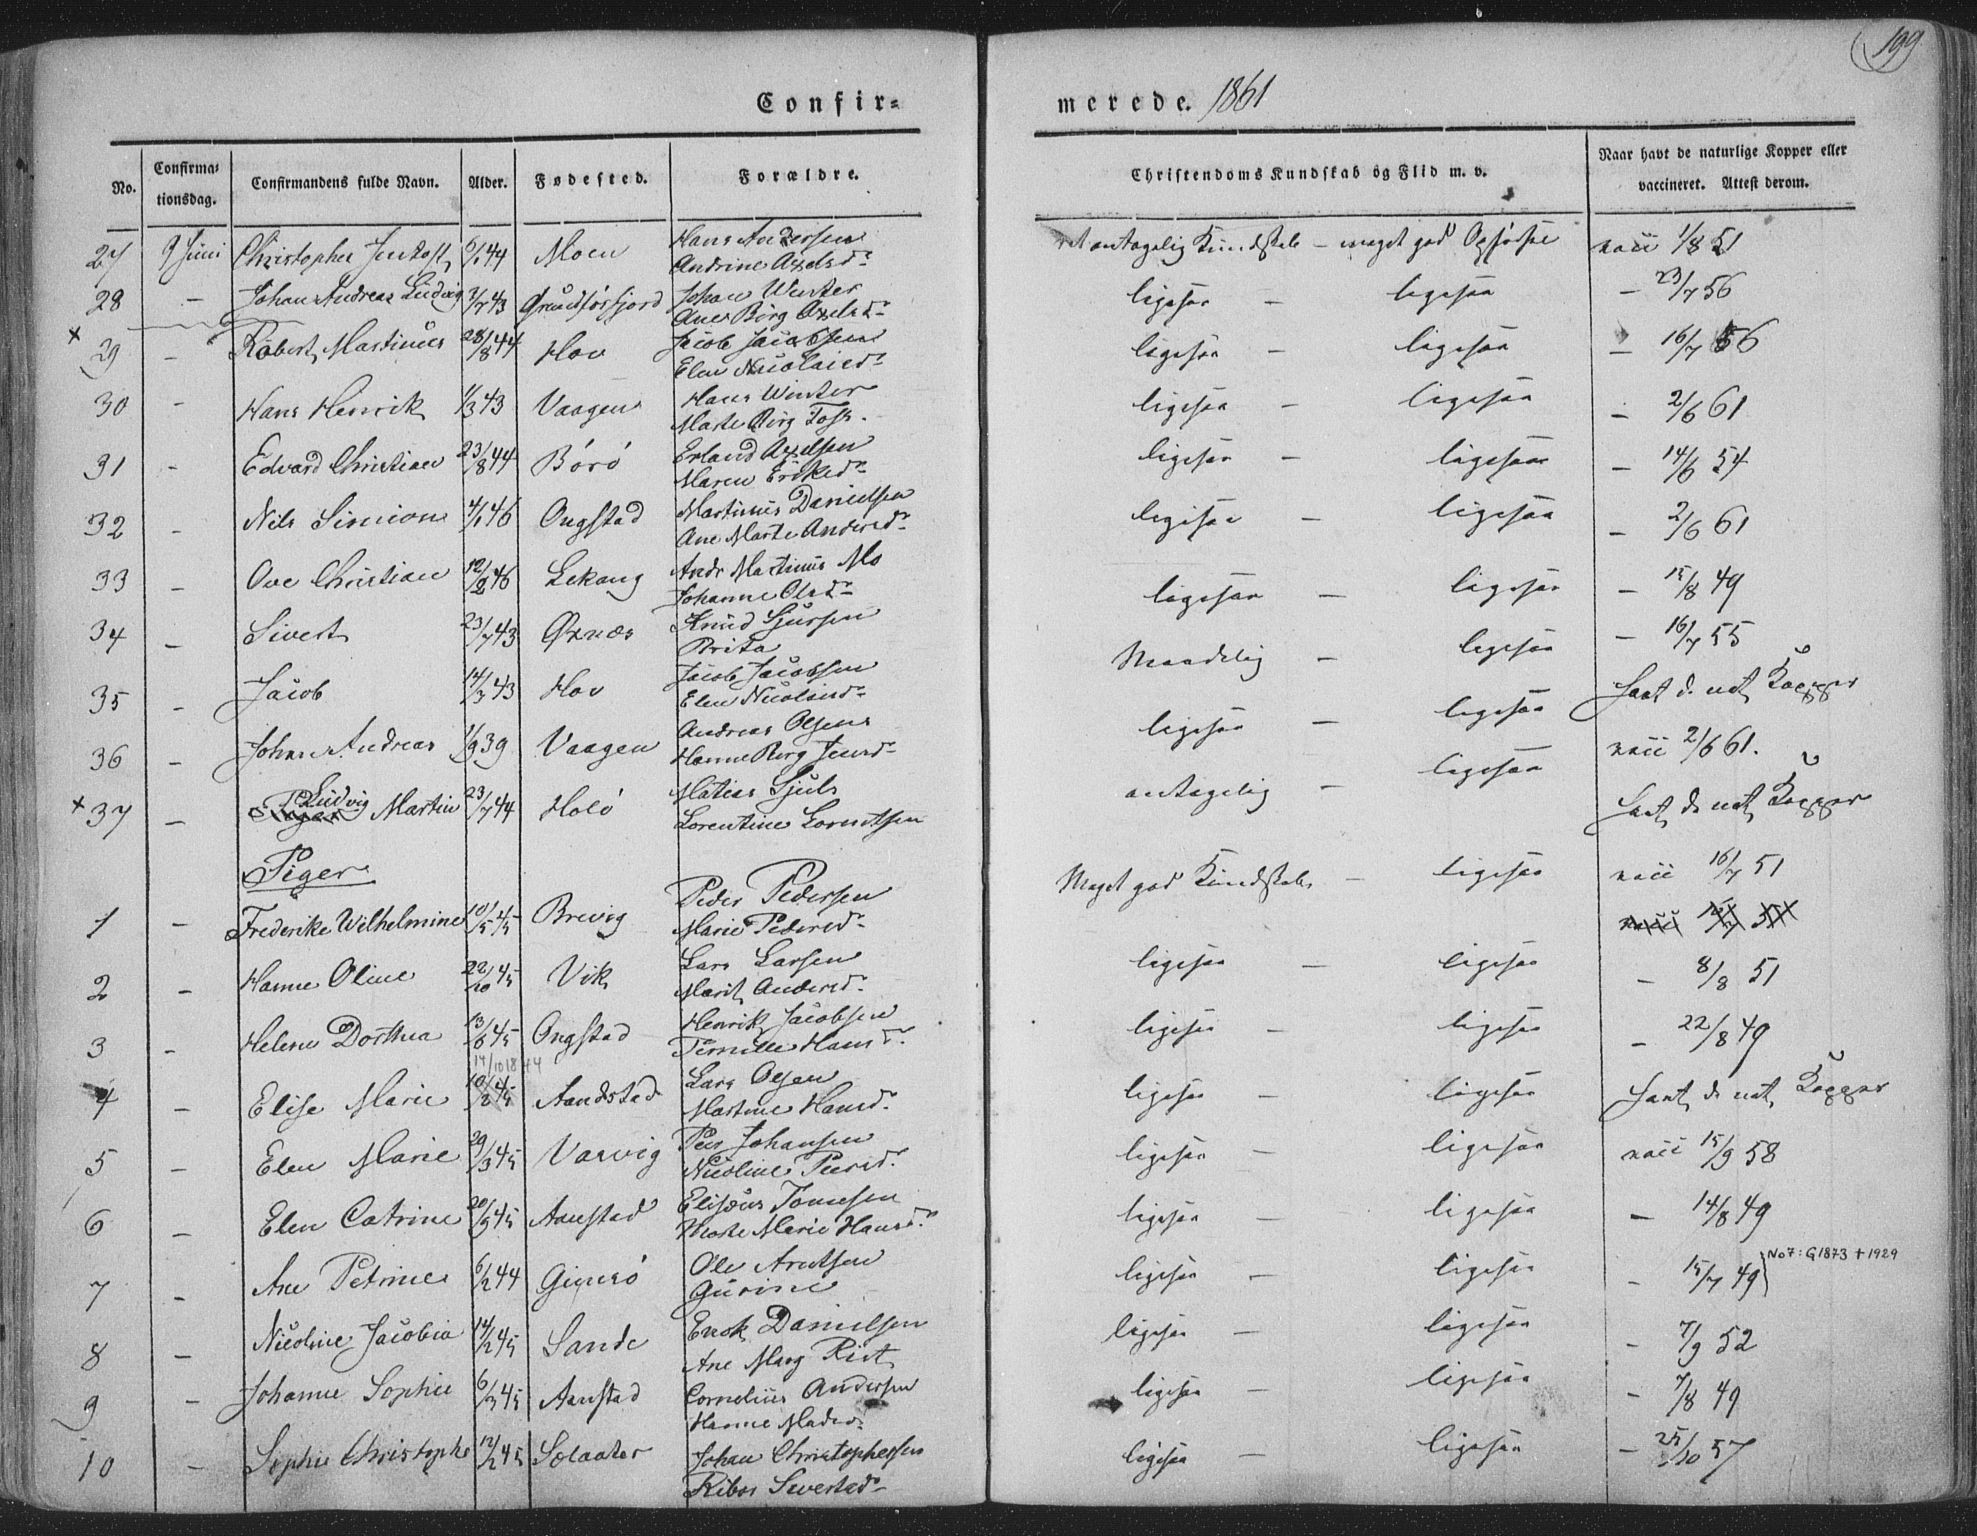 199
Confir= merede. 1861
No. Confirma= tionsdag. Confirmandens fulde Navn. Alder. Fødested. Forældre. Christendoms Kundskab og Flid m. v. Naar havt de naturlige Kopper eller vaccineret. Attest derom.
27 9 Juni Christopher 6/1 44 Moen Hans Andersen antagelig Kundskab – meget god vacc 1/8 51
Andrine Axelsd.
28 – Johan Andreas Ludvig 2/7 43 Grundfosfjord Johan Winter ligesaa – ligesaa – 23/7 56
Ane Berg Axelsd.
× 29 – Robert Martinus 28/8 44 Hov Jacob Jacobsen ligesaa – ligesaa – 16/7 56
Elen Nicolaisd.
30 – Hans Henrik 1/3 43 Vaagen Hans Winter ligesaa – ligesaa – 2/6 61
Marte Berg
31 – Edvard Christian 23/8 44 Børø Erland Axelsen ligesaa – ligesaa – 14/6 54
Maren Eriksd.
32 – Nils Simion 4/1 46 Ongstad Martinus Danielsen ligesaa – ligesaa – 2/6 61
Ane Marte Andersd.
33 – Ove Christian 12/2 46 Lekang Andr Martinus Mo ligesaa – ligesaa – 15/8 49
Johanne Olsd.
34 – Sivert 23/7 43 Øxnæs Knud Sjursen Maadelig – ligesaa – 16/7 55
Brita
35 – Jacob 14/3 43 Hov Jacob Jacobsen ligesaa – ligesaa havt d. nat. Kopper
Elen Nicolaisd.
36 – Johan Andreas 1/9 39 Vaagen Andreas Olsen antagelig – ligesaa vacc 2/6 61.
Hanne Berg Jensd.
× 37 – Ludvig Martin 23/7 44 Holø Matias Sjuls havt d. nat. Kopper
Lorentine Lorntsen
Piger
1 – Frederike Wilhelmine 10/5 45 Brevig Peder Pedersen Meget god Kundskab – ligesaa vacc 16/7 51
Marie Pedersd.
2 – Hanne Oline 22/10 45 Vik Lars Larsen ligesaa – ligesaa – 8/8 51
Marit Andersd.
3 – Helene Dorthea 13/6 45 Ongstad Henrik Jacobsen ligesaa – ligesaa – 22/8 49
Pernille Hansd.
14/10 1844
4 – Elise Marie 10/2 45 Aandstad Lars Olsen ligesaa – ligesaa havt d. nat. Kopper
Martine Hansd.
5 – Elen Marie 29/3 45 Varvig Peer Johansen ligesaa – ligesaa vacc 15/9 58
Nicoline Peersd.
6 – Elen Catrine 20/9 45 Aanstad Elisæus Tomesen ligesaa – ligesaa – 14/8 49
Marte Marie Hansd.
7 – Ane Petrine 6/2 44 Gisnsø Ole Arntsen ligesaa – ligesaa – 15/7 49 No 7: G 1873 + 1929
Gurine
8 – Nicoline Jacobia 14/2 45 Sande Enok Danielsen ligesaa – ligesaa – 7/9 52
Ane Marg Rist
9 – Johanne Sophie 6/3 45 Aanstad Cornelius Andersen ligesaa – ligesaa – 7/8 49
Hanne Madsd.
10 – Sophie Christophe 12/2 45 Sælaater Johan Christophersen ligesaa – ligesaa – 25/10 57
Sivertsd.